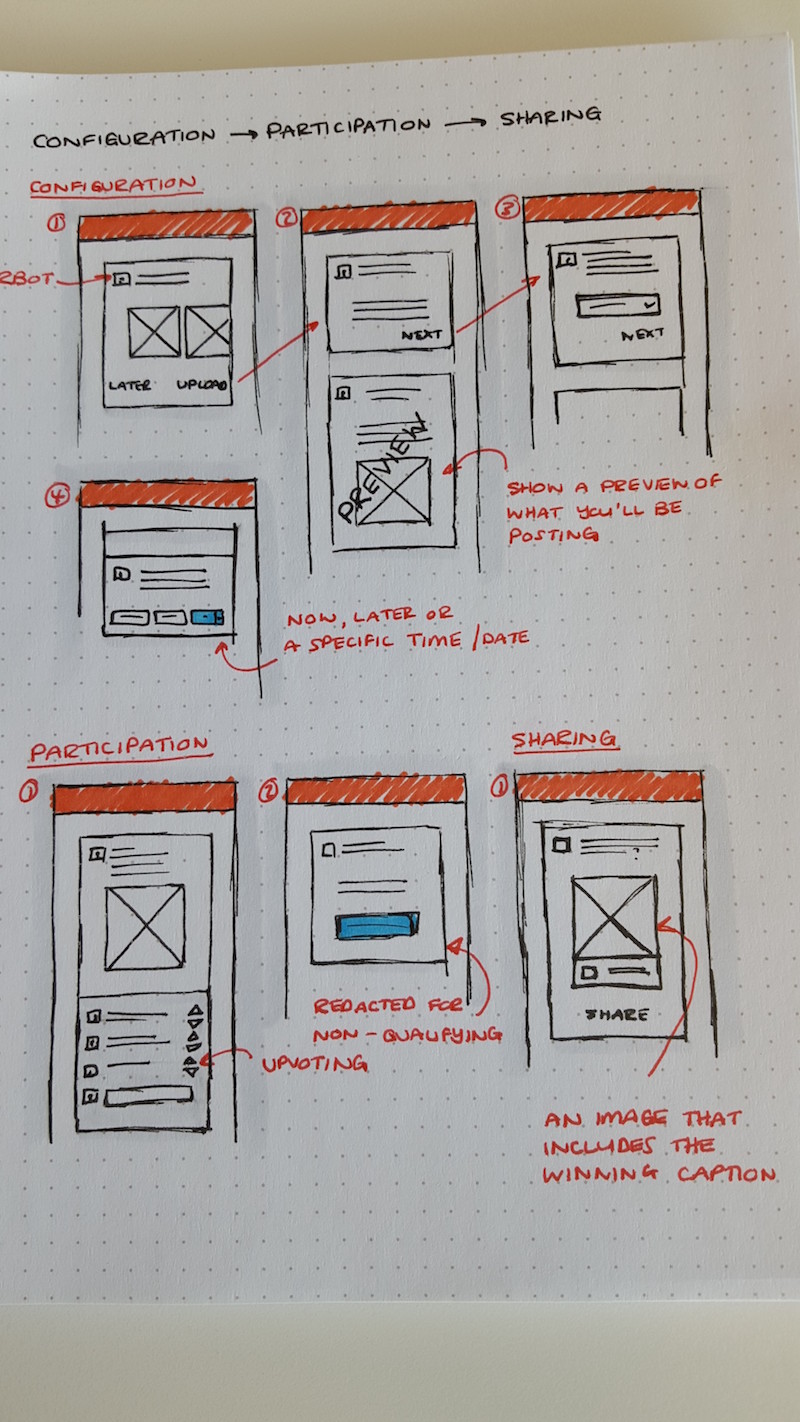 CONFIGURATION → PARTICIPATION → SHARING
CONFIGURATION
1
2
3
RBOT
LATER UPLOAD
NEXT
NEXT
PREVIEW
SHOW A PREVIEW OF
WHAT YOU'LL BE
POSTING
4
NOW, LATER OR
A SPECIFIC TIME/DATE
PARTICIPATION
SHARING
1
2
1
REDACTED FOR
NON-QUALIFYING
UPVOTING
SHARE
AN IMAGE THAT
INCLUDES THE
WINNING CAPTION